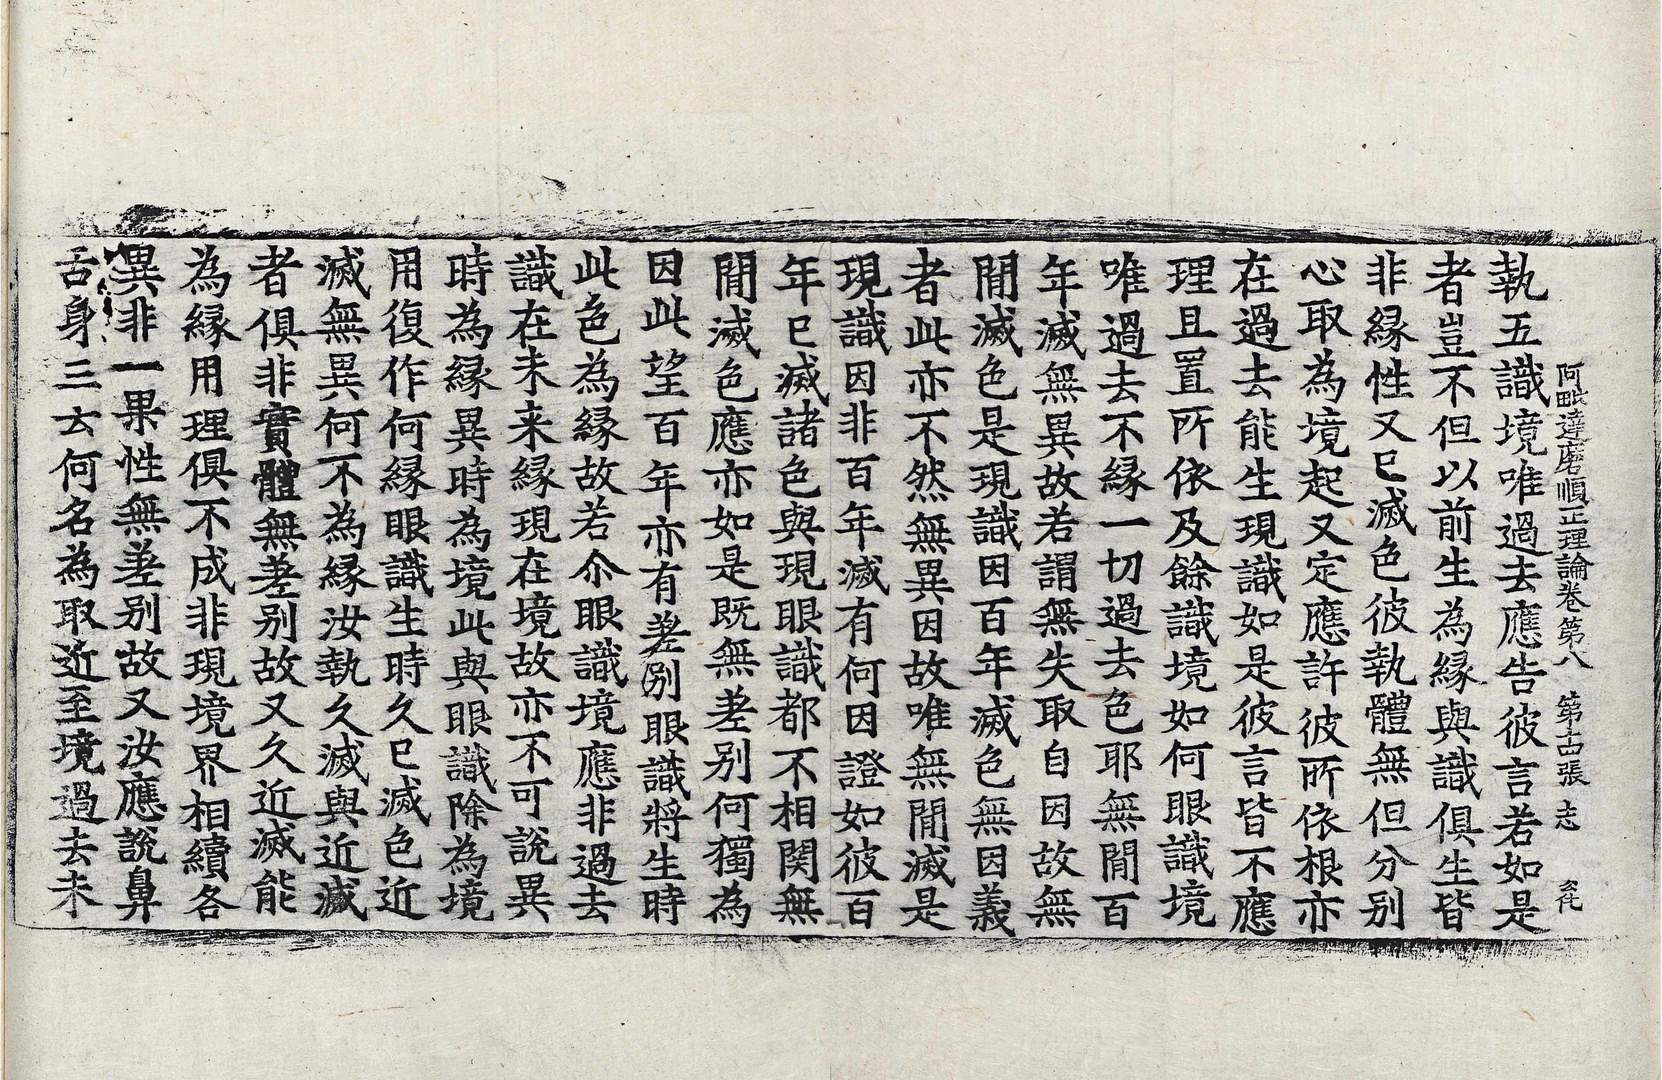 阿毗達磨順正理論卷第八　第十四張　志
執五識境唯過去應告彼言若如是
者豈不但以前生為緣與識俱生皆
非緣性又已滅色彼執體無但分別
心取為境起又定應許彼所依根亦
在過去能生現識如是彼言皆不應
理且置所依及餘識境如何眼識境
唯過去不緣一切過去色耶無間百
年滅無異故若謂無失取自因故無
間滅色是現識因百年滅色無因義
者此亦不然無異因故唯無間滅是
現識因非百年滅有何因證如彼百
年已滅諸色與現眼識都不相関無
間滅色應亦如是既無差別何獨為
因此望百年亦有差別眼識將生時
此色為緣故若尒眼識境應非過去
識在未来緣現在境故亦不可說異
時為緣異時為境此與眼識除為境
用復作何緣眼識生時久已滅色近
滅無異何不為緣汝執久滅與近滅
者俱非實體無差別故又久近滅能
為緣用理俱不成非現境界相續各
異非一果性無差別故又汝應說鼻
舌身三云何名為取近至境過去未